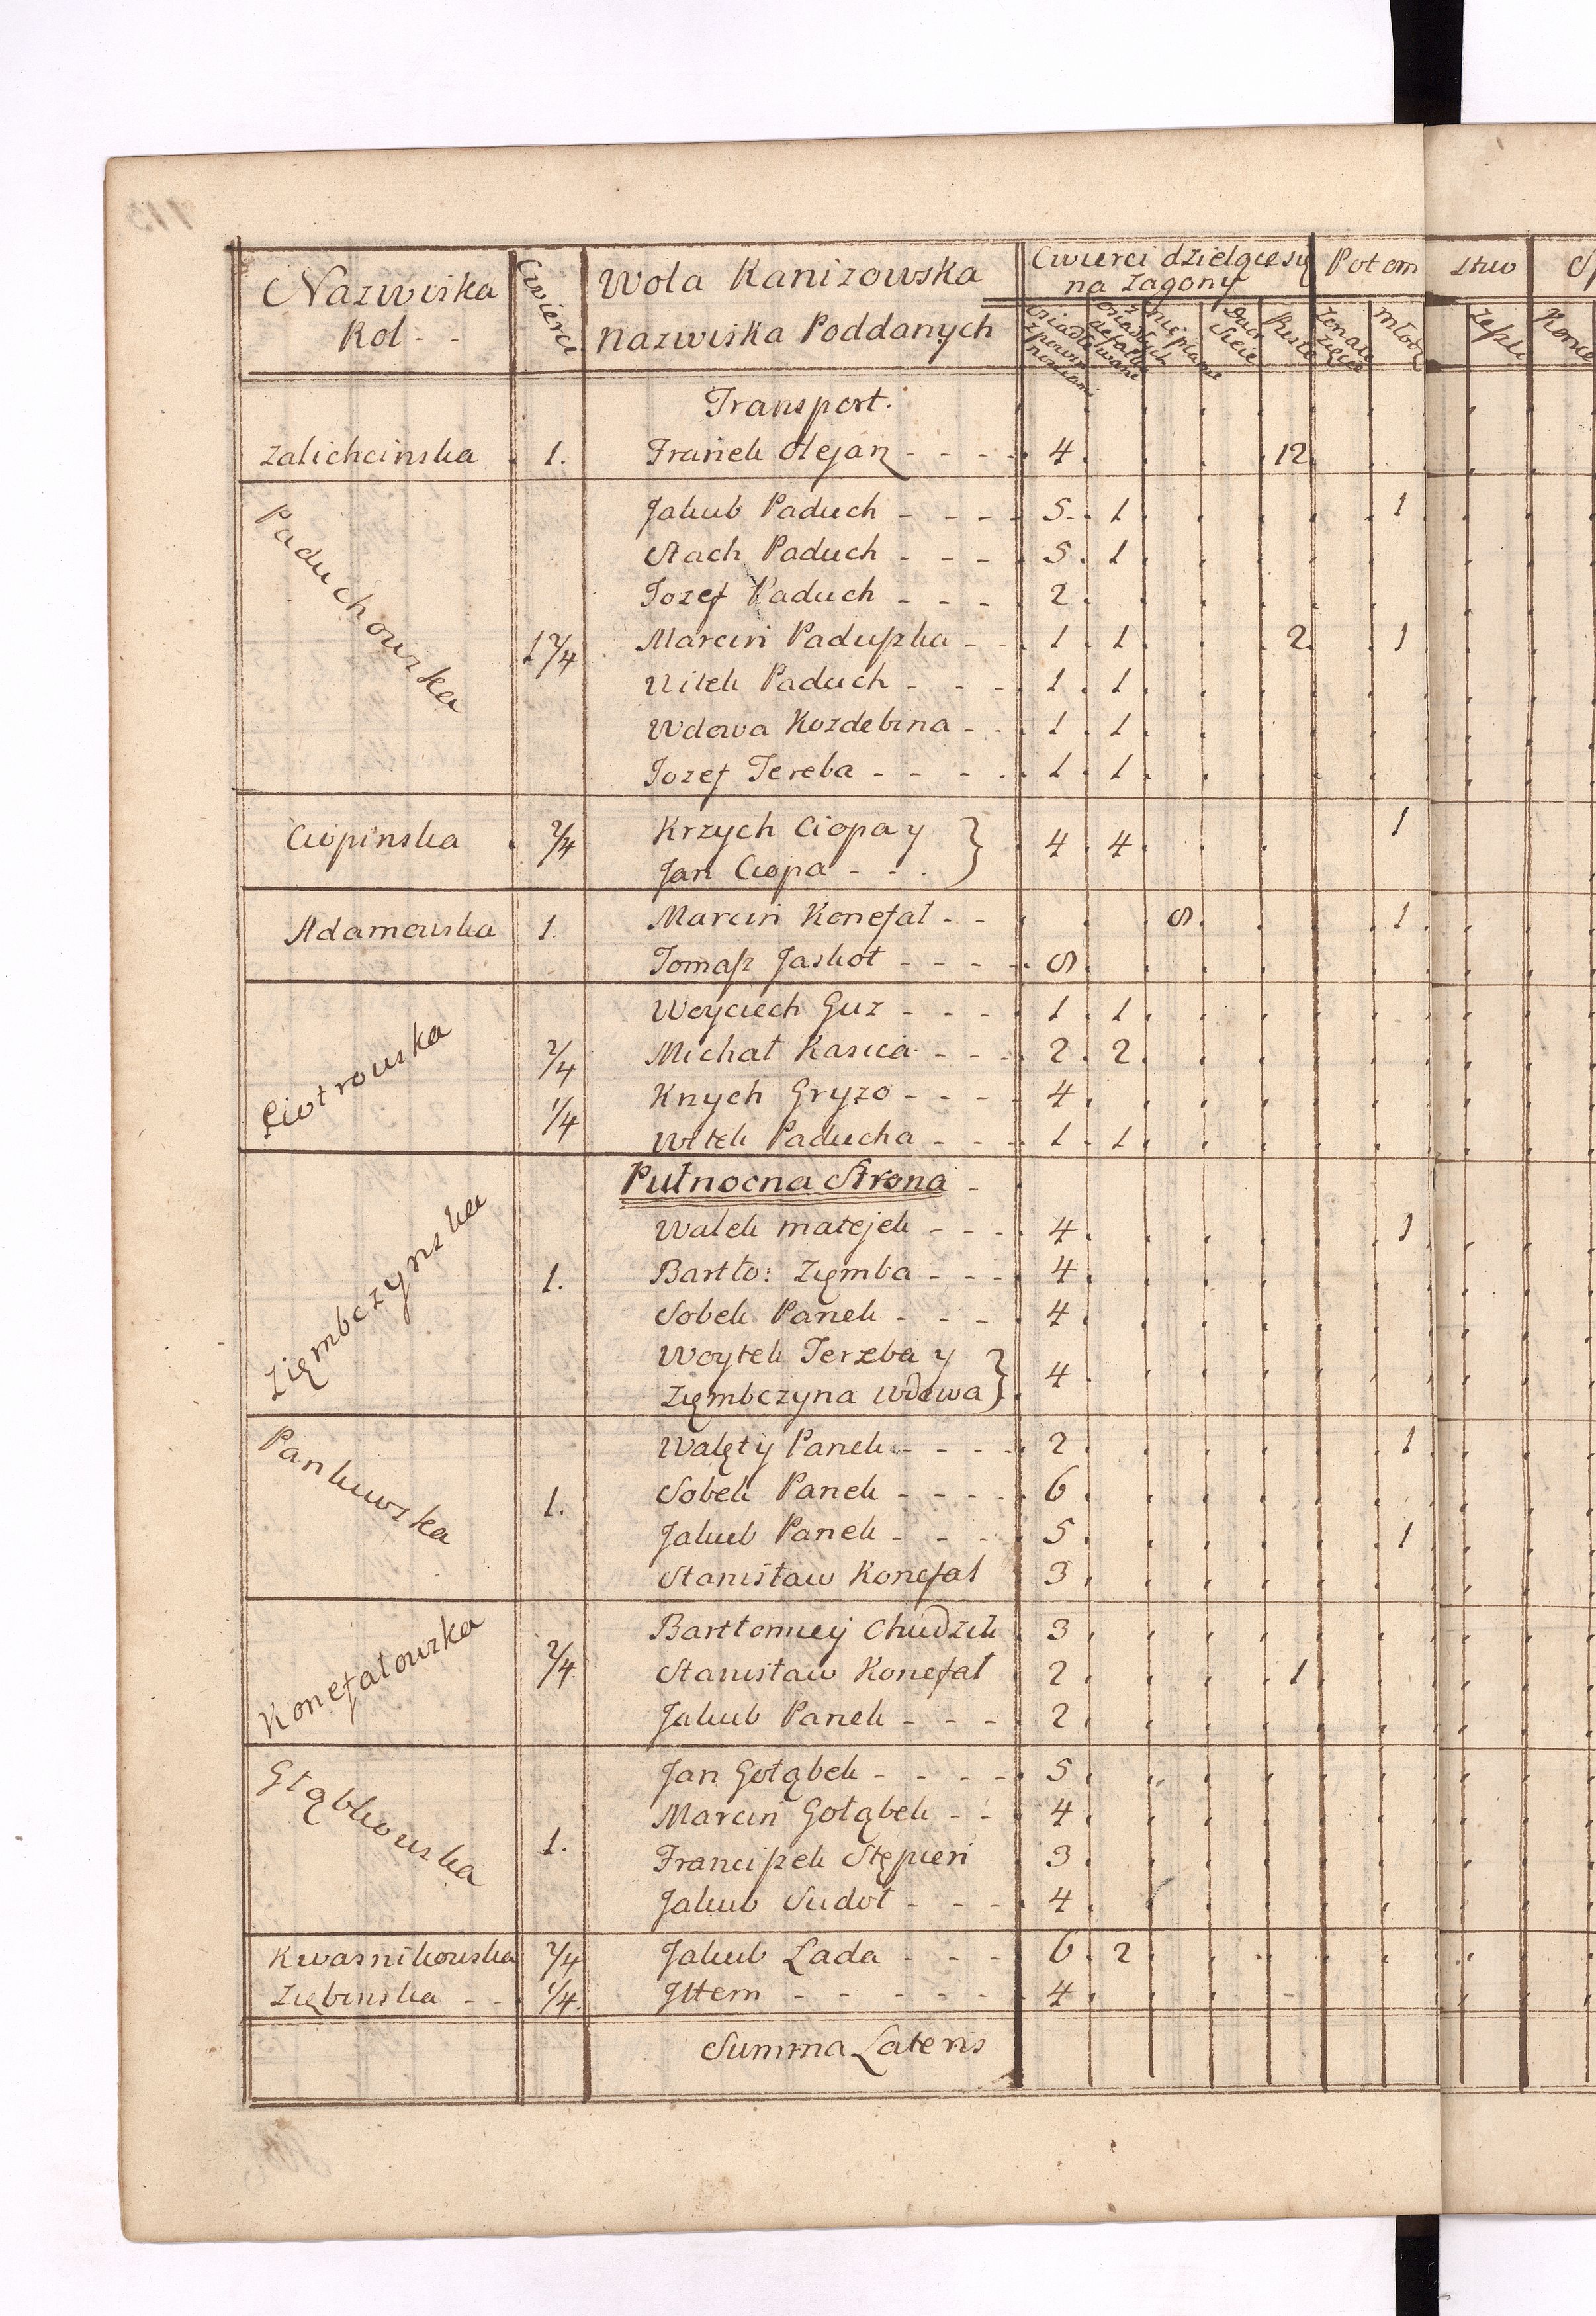 Nazwiska Rol - - Cwierci Wola Kanizowska Cwierci dzielące się na Zagony Potom stwo
Nazwiska Poddanych Puste żonate młodz
Transport.
Zalichcinska 1. Franek Olejarz - - - 4 12
Paduchowska 1 2/4 Jakub Paduch - - - 5 1 1
Stach Paduch - - - 5 1
Jozef Paduch - - - 2
Marcin Paduszka - 1 1 2 1
Witek Paduch - - - 1 1
Wdowa Kozdebina - - 1 1
Jozef Tereba - - - 1 1
Ciopinska 2/4 Krzych Ciopa y } 4 4 1
Jan Ciopa - - - }
Adamowska 1. Marcin Konefal - - 8 1
Tomasz Jaskot - - - 8
Piotrowska 2/4 1/4 Woyciech Guz - - - 1 1
Michał Kasica - - - 2 2
Knych Gryzo - - - 4
Witek Paducha - - - 1 1
Pułnocna Strona -
Ziembczynska 1. Walek Matejek - - - 4 1
Bartło: Ziemba - - - 4
Sobek Panek - - - 4
Woytek Terzeba y } 4
Ziembczyna Wdowa }
Pankowska 1. Walęty Panek - - - 2 1
Sobek Panek - - - - 6
Jakub Panek - - - 5 1
Stanisław Konefal 3
Konefałowska 2/4 Bartłomiey Chudzik 3
Stanisław Konefał 2 1
Jakub Panek - - - 2
Głąbkowska 1. Jan Gołąbek - - - - 5
Marcin Gołąbek - - 4
Franciszek Stępień 3
Jakub Sudoł - - - 4
Kwasnikowska 2/4 Jakub Lada - - - 6 2
Ziębinska - - 1/4 Jttem - - - - - 4
Summa Lateris